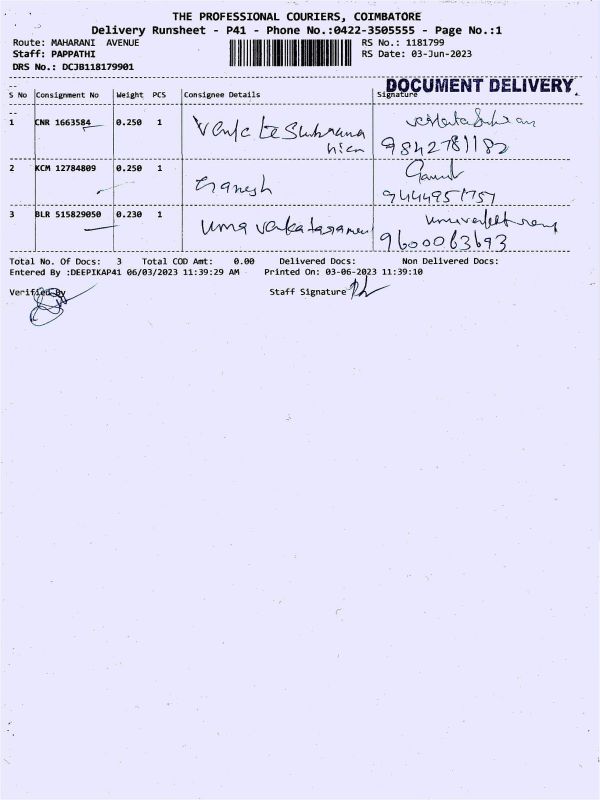 THE PROFESSIONAL COURIERS, COIMBATORE
Delivery Runsheet - P41 - Phone No.:0422-3505555 - Page No.:1
Route: MAHARANI AVENUE RS No.: 1181799
Staff: PAPPATHI RS Date: 03-Jun-2023
DRS No.: DCJB118179901
DOCUMENT DELIVERY
S No Consignment No Weight PCS Consignee Details Signature
1 CNR 1663584 0.250 1
9842781182
2 KCM 12784809 0.250 1 Ganesh
9444951757
3 BLR 515829050 0.230 1 Uma
9600063693
Total No. Of Docs: 3 Total COD Amt: 0.00 Delivered Docs: Non Delivered Docs:
Entered By :DEEPIKAP41 06/03/2023 11:39:29 AM Printed On: 03-06-2023 11:39:10
Verified By Staff Signature